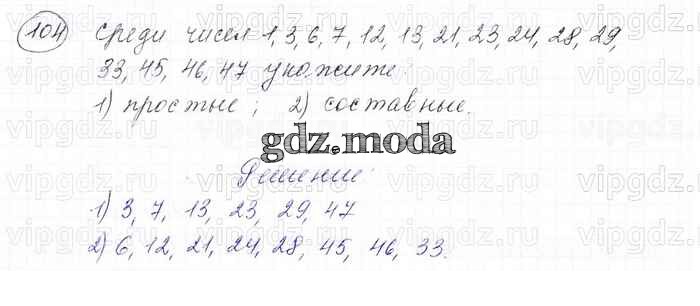 104 Среди чисел 1, 3, 6, 7, 12, 13, 21, 23, 24, 28, 29,
33, 45, 46, 47 укажите:
1) простые; 2) составные.
gdz.moda
Решение:
1) 3, 7, 13, 23, 29, 47
2) 6, 12, 21, 24, 28, 45, 46, 33.
vipgdz.ru